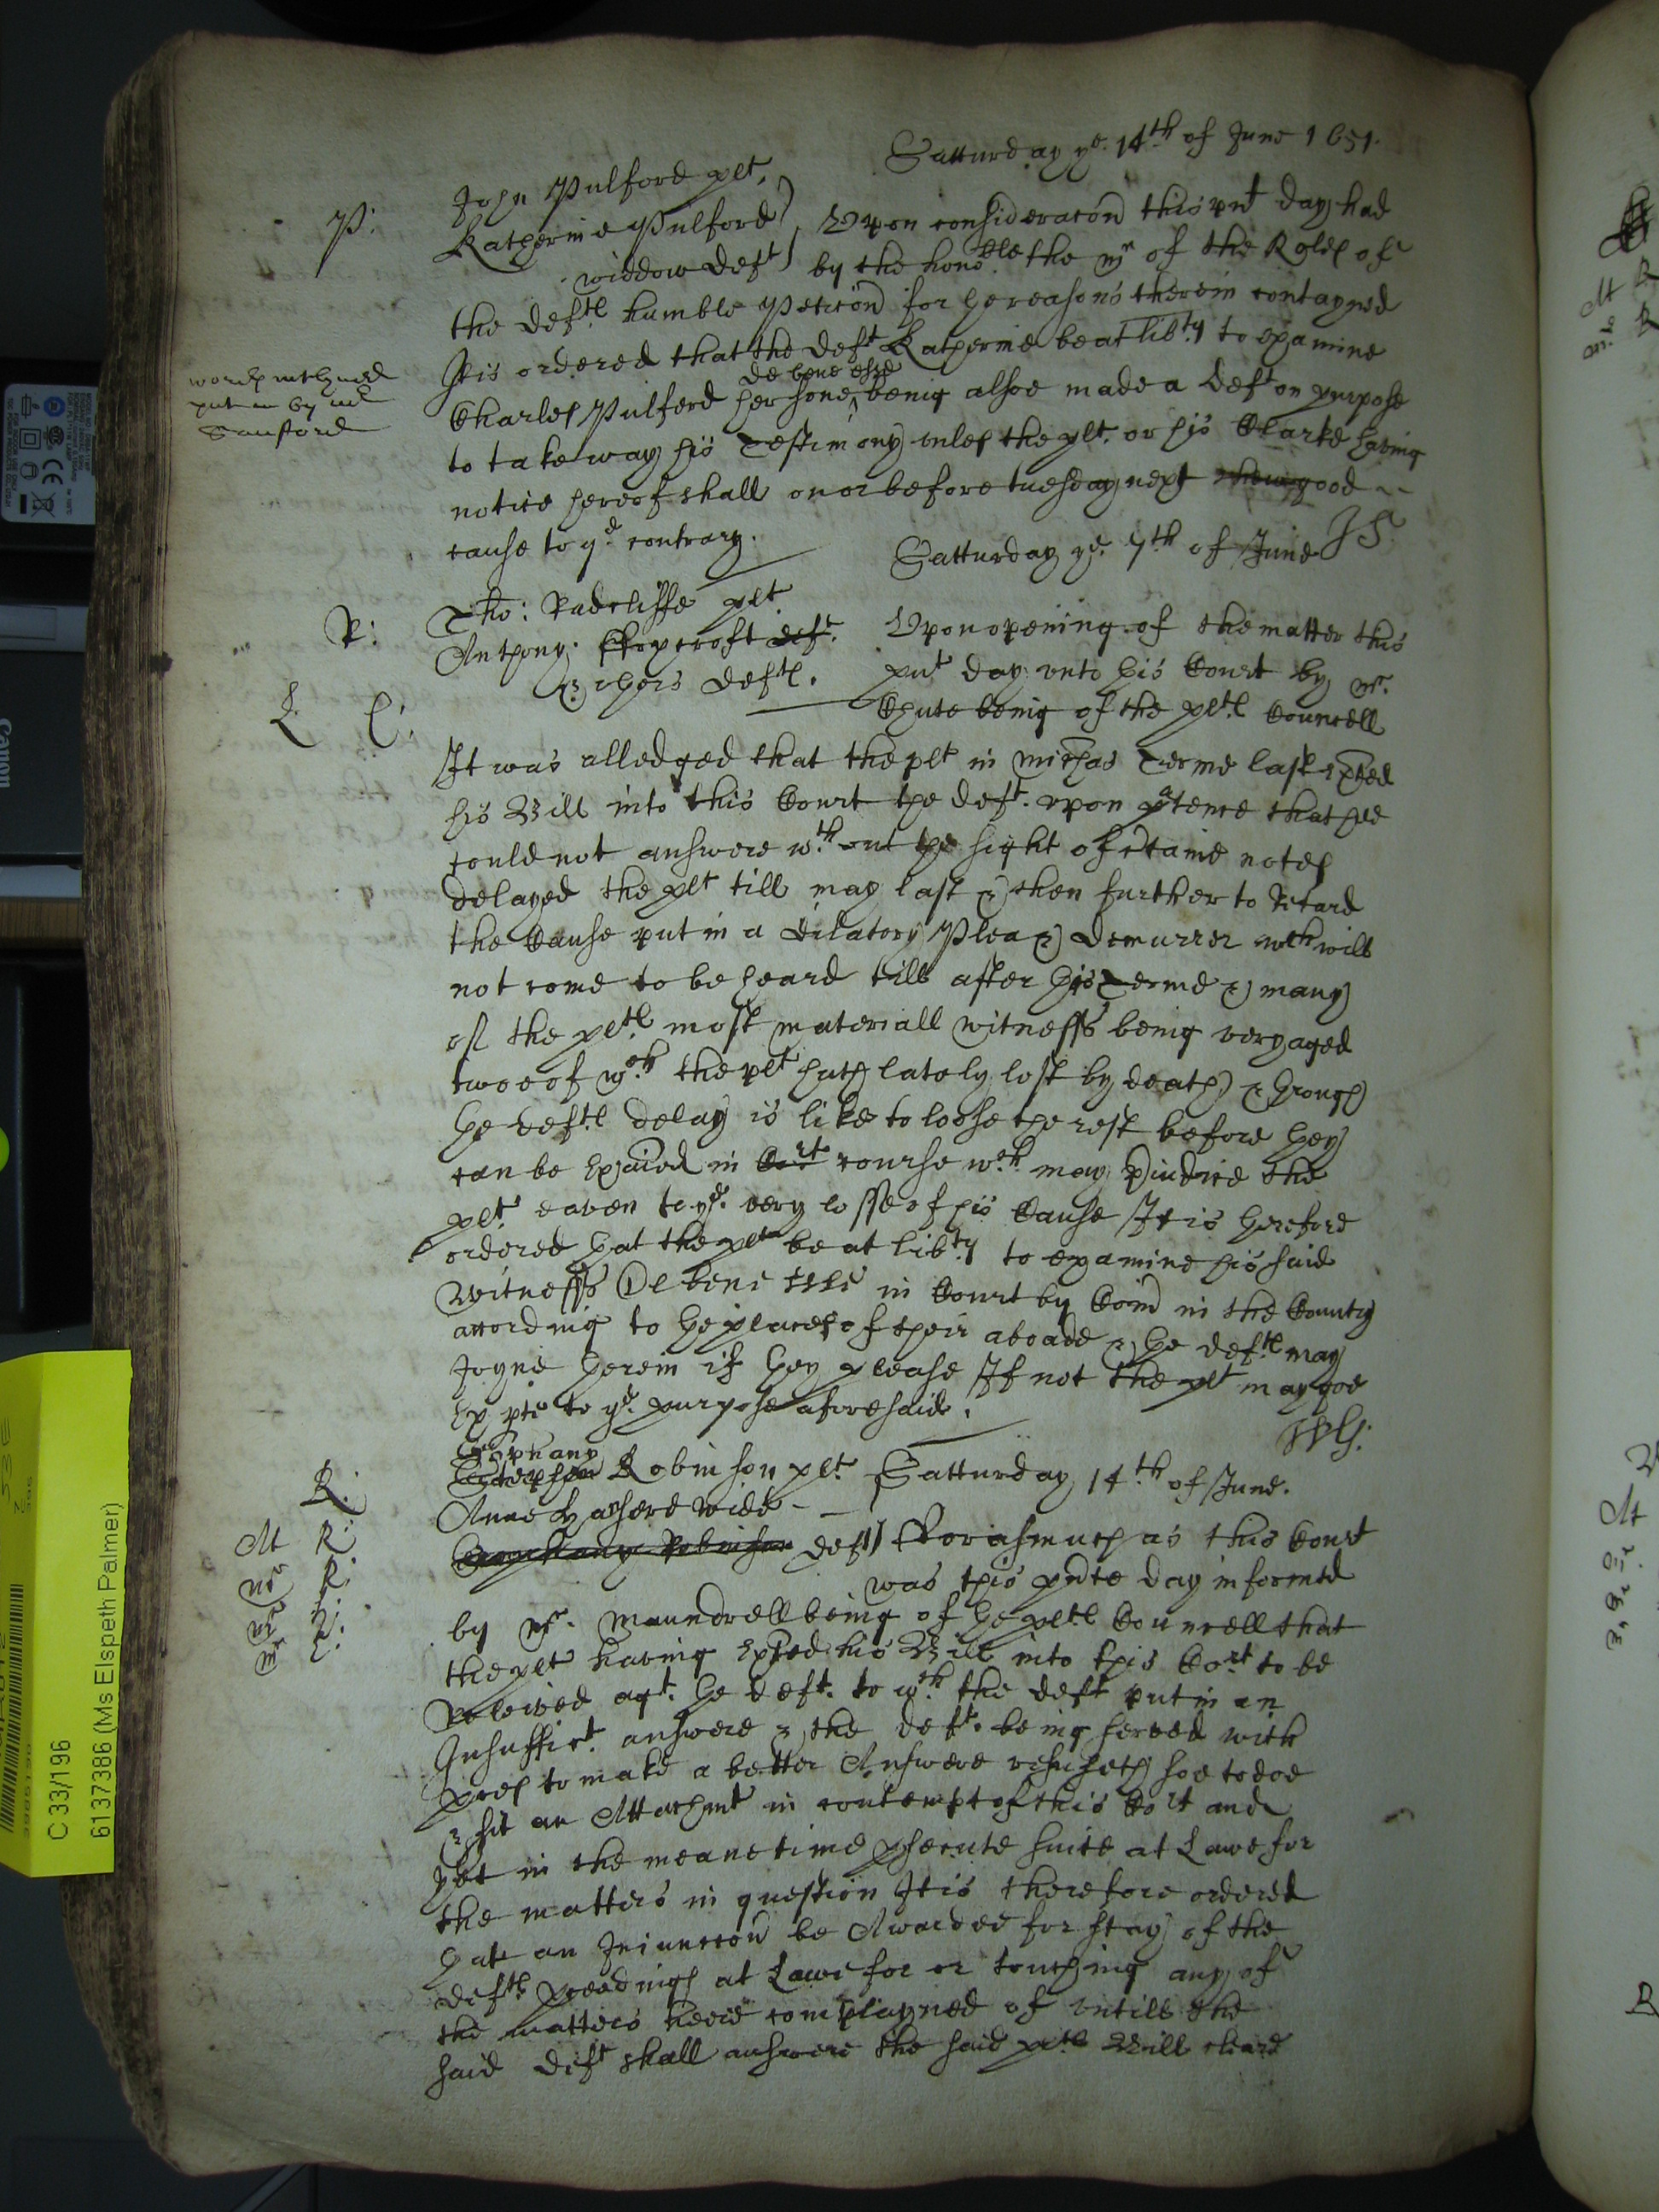 Satturday ye. 14th of June 1651.
P:
John Pulford plt.
Katherine Pulford
widdow deft
Vpon consideracon this pnt day had
by the honoble the mr of the Rolles of
the defts humble Peticon for the reasons therein contayned
It is ordered that the deft Katherine be at libty to examine
words interlyned
put in by mr
Sanford
de bene esse
Charles Pulford her sone being alsoe made a deft on purpose
to take way his Testimony vnles the plt. or his Clarke having
notice hereof shall on or before tuesday next shew good
cause to ye contrary.
JS.
Satturday ye. 7th of June
R:
Tho: Radcliffe plt
Anthony deft.
& others defts.
L C:
Vpon opening of the matter this
pnt day vnto this Court by mr.
Chute being of the plts Councell
It was alledged that the plt in michas Terme last exhited
his Bill into this Court the deft. vpon ptence that hee
could not answere wthout the sight of ctaine notes
delayed the plt till may last & then further to Retard
the Cause put in a dilatory Plea & demurrer wch will
not come to be heard till after this Terme & many
of the plts most materiall witnesss being very aged
twoe of wch the plt hath lately lost by death & through
the defts delay is like to loose the rest before they
can be exaied in Cort course wch may preiudice the
plt eaven to ye. very losse of his Cause It is therefore
ordered that the plt be at libty to examine his said
witnesss De bene esse in Court by Comn in the Country
according to the places of their aboade & the defts may
Joyne therein if they please If not the plt may goe
Ex pte to ye. purpose aforesaid.
Robinson plt
Satturday 14th of June.
R:
Anne widd
defts
At R:
mr R:
Forasmuch as this Court
was this pnte day informed
by mr. Maundrell being of the plts Councell that
the plt having exhited his Bill into this Cort to be
Releived agt. the deft. to wch the deft put in an
Insuffict. answere & the deft. being served with
proces to make a better Answere refuseth soe to doe
& sit an Attachmt in contempt of this Cort and
yet in the meane time psecute suite at Lawe for
the matters in question It is therefore ordered
that an Iniunccon be Awarded for stay of the
defts pceedings at Lawe for or touching any of
the matters here complayned of vntill the
said deft shall answere the said plts Bill cleare
C 33/196
6137386 (Ms Elspeth Palmer)
Canon